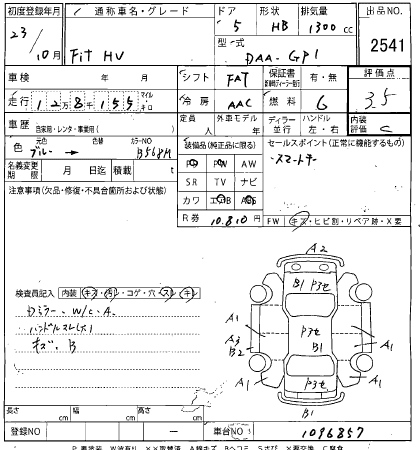 初度登録年月 通称車名・グレード ドア 形状 排気量 出品NO
23 / 10月 Fit HV 5 HB 1300 cc 2541
型・式 DAA-GP1
車検 年 月 シフト FAT 保証書 有・無 評価点
走行 12万8千155 マイル キロ 冷房 AAC 燃料 G 3.5
車歴 自家用・レンタ・事業用( ) 定員 人 外車モデル 年 ディーラー 並行 ハンドル 左・右 内装評価 C
色 元色 ブルー → 色替 カラーNO B568M 装備品(純正品に限る) セールスポイント(正常に機能するもの)
PS PW AW ・スマートキー
名義変更期限 月 日迄 積載 t SR TV ナビ
注意事項(欠品・修復・不具合箇所および状態) カワ エアB ABS
R券 10,810円 FW キズ・ヒビ割・リペア跡・X要
A2
B1 P3セ
検査員記入 内装 キズ・汚・コゲ・穴・スレ・キレ
Dミラー、W/C、A、
ハンドルスレ(大)
キズ、B
A1 P3セ A1
A3 B2 B1
A1 P3セ A1 A1
B1
長さ cm 幅 cm 高さ cm
登録NO — 車台NO 1096857